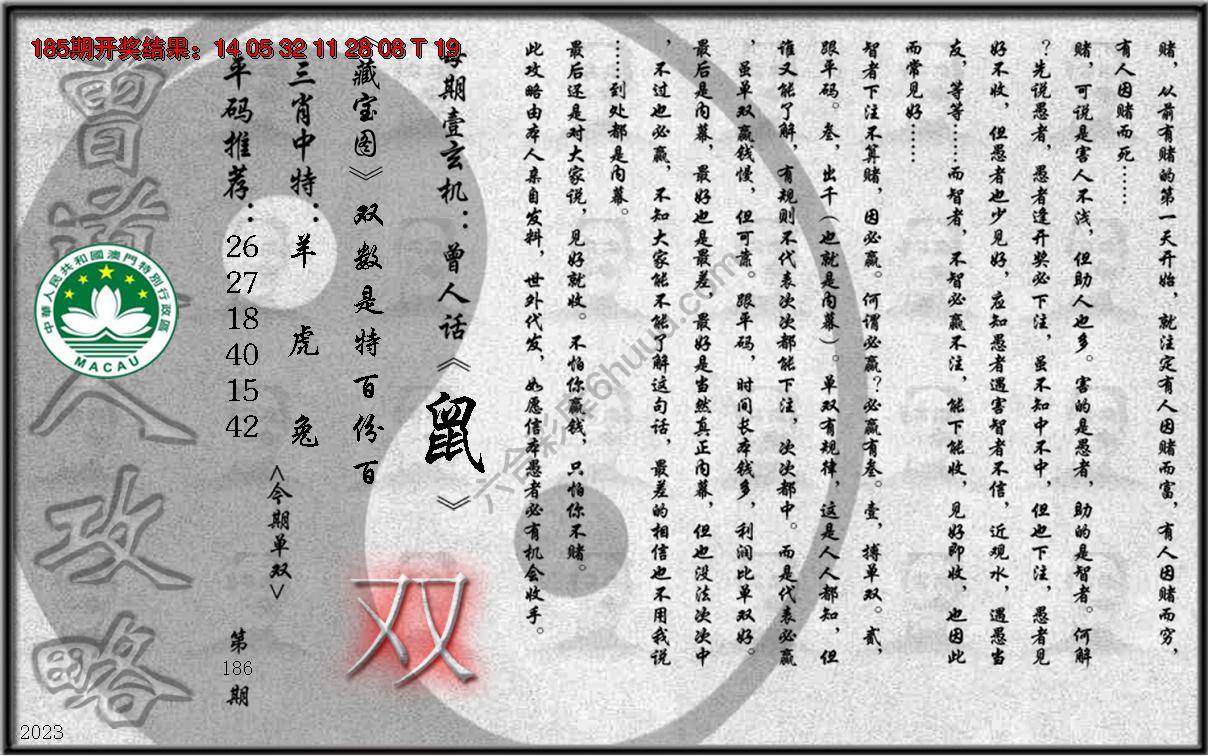 185期开奖结果：14 05 32 11 28 08 T 19
赌，从前有赌的第一天开始，就注定有人因赌而富，有人因赌而穷，
有人因赌而死……
赌，可说是害人不浅，但助人也多。害的是愚者，助的是智者。何解
？先说愚者，愚者逢开奖必下注，虽不知中不中，但也下注，愚者见
好不收，但愚者也少见好，应知愚者遇害智者不信，近观水，遇愚当
友，等等……而智者，不智必赢不注，能下能收，见好即收，也因此
而常见好……
智者下注不算赌，因必赢。何谓必赢？必赢有叁。壹，搏单双。贰，
跟平码。叁，出千（也就是内幕）。单双有规律，这是人人都知，但
谁又能了解，有规则不代表次次都能下注，次次都中。而是代表必赢
，虽单双赢钱慢，但可靠。跟平码，时间长本钱多，利润比单双好。
最后是内幕，最好也是最差，最好是当然真正内幕，但也没法次次中
，不过也必赢，不知大家能不能了解这句话，最差的相信也不用我说
……到处都是内幕。
最后还是对大家说，见好就收。不怕你赢钱，只怕你不赌。
此攻略由本人亲自发料，世外代发，如愿信本愚者必有机会收手。
每期壹玄机：曾人话《鼠》
《藏宝图》双数是特百份百
双
三肖中特：羊 虎 兔
<今期单双>
平码推荐：26 27 18 40 15 42
第186期
曾道人攻略
中華人民共和國澳門特別行政區
MACAU
六合彩库6huuu.com
2023